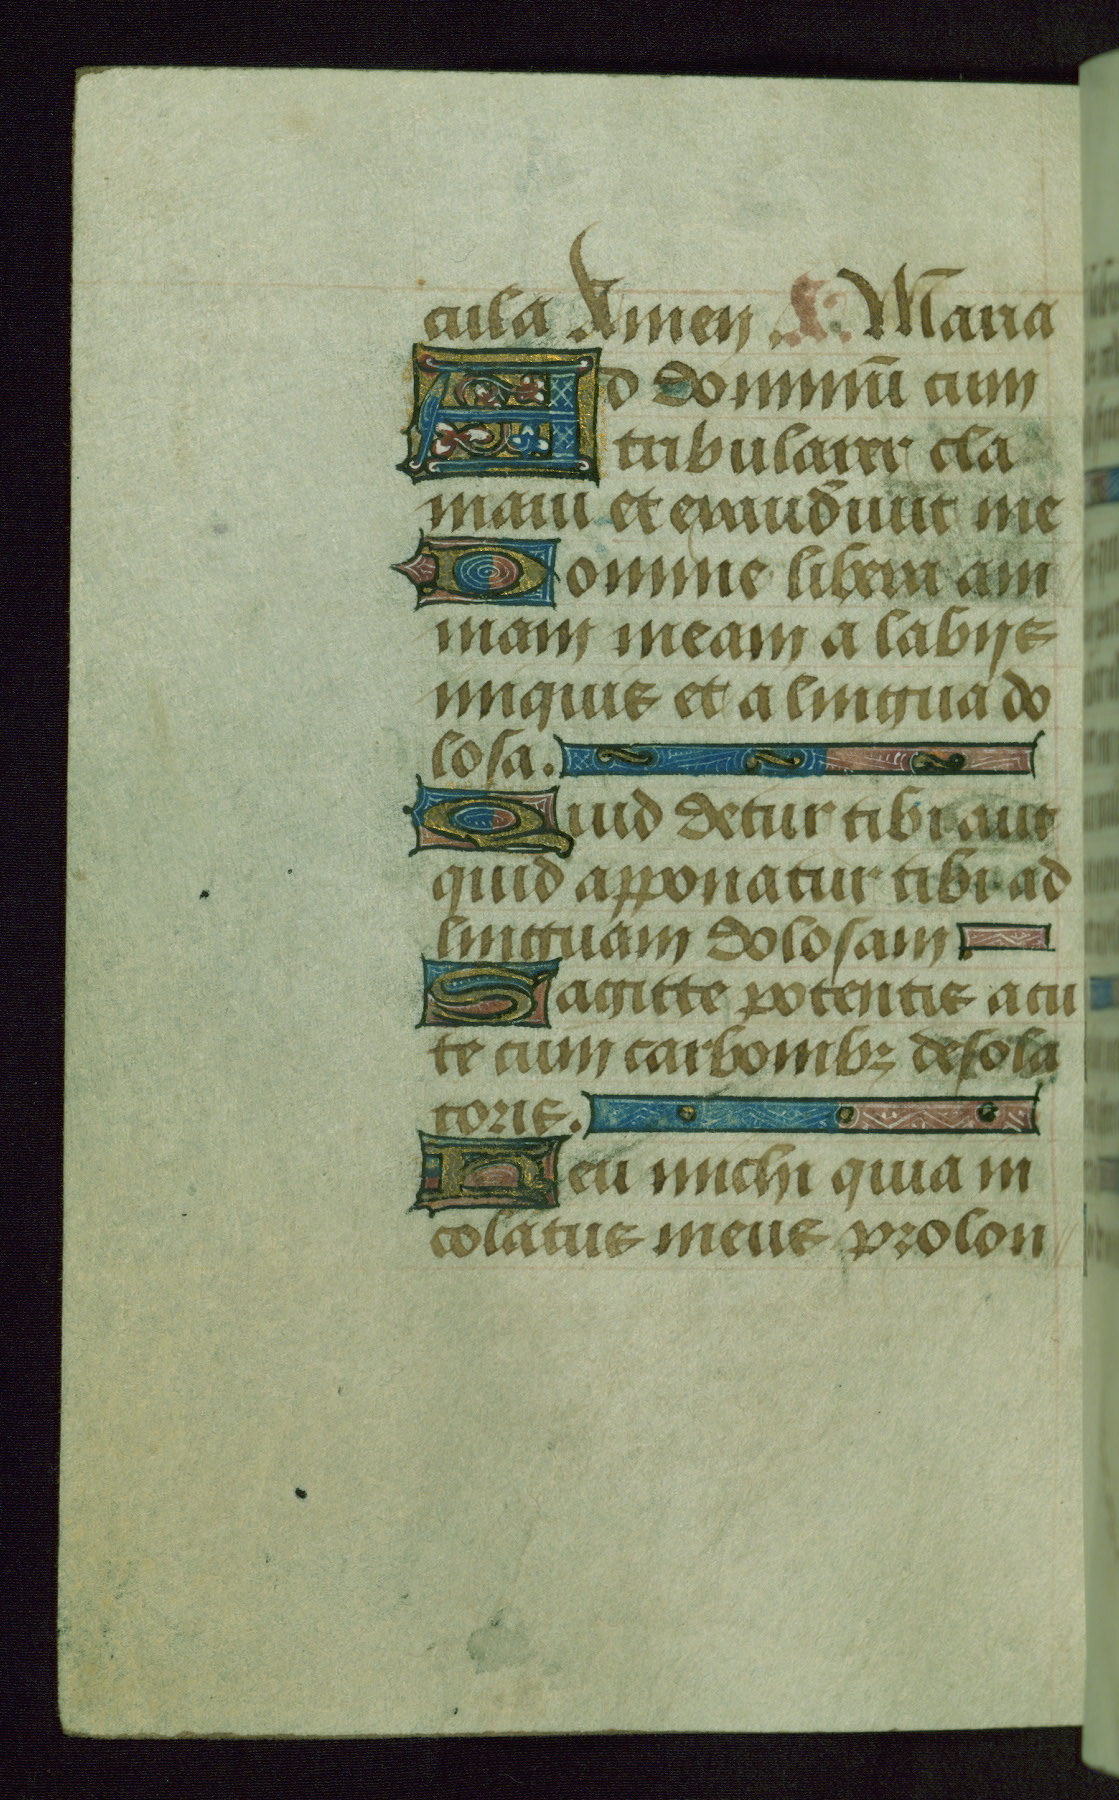 cula Amen A. Maria
Ad dominū cum
tribularer cla
maui et exaudiuit me
Domine libera ani
mam meam a labijs
iniquis et a lingua do
losa.
Quid detur tibi aut
quid apponatur tibi ad
linguam dolosam.
Sagitte potentis acu
te cum carbonibꝫ desola
toris.
Heu michi quia in
colatus meus prolon